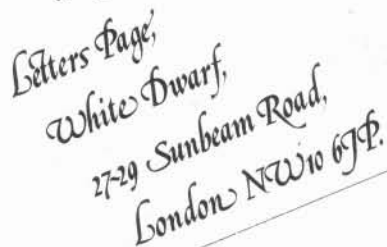 Letters Page,
White Dwarf,
27-29 Sunbeam Road,
London NW10 6JP.